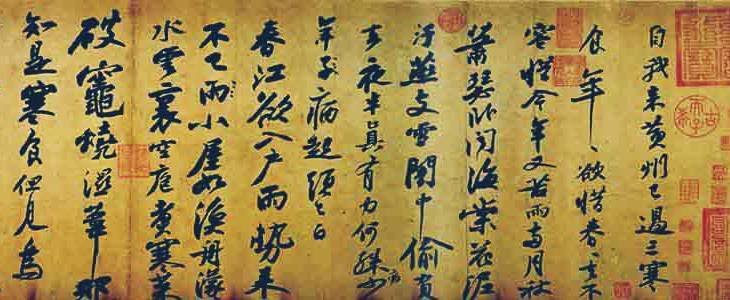 自我来黄州已過三寒
食年〻欲惜春〻去不
容惜今年又苦雨兩月秋
蕭瑟卧聞海棠花泥
汙燕支雪闇中偷負
去夜半真有力何殊少
年子病起須已白
春江欲入户雨勢来
不已雨小屋如漁舟濛
水雲裏空庖煮寒菜
破竈燒濕葦那
知是寒食但見烏